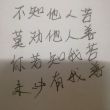 不知他人苦
莫劝他人善
你若知我苦
未必有我善